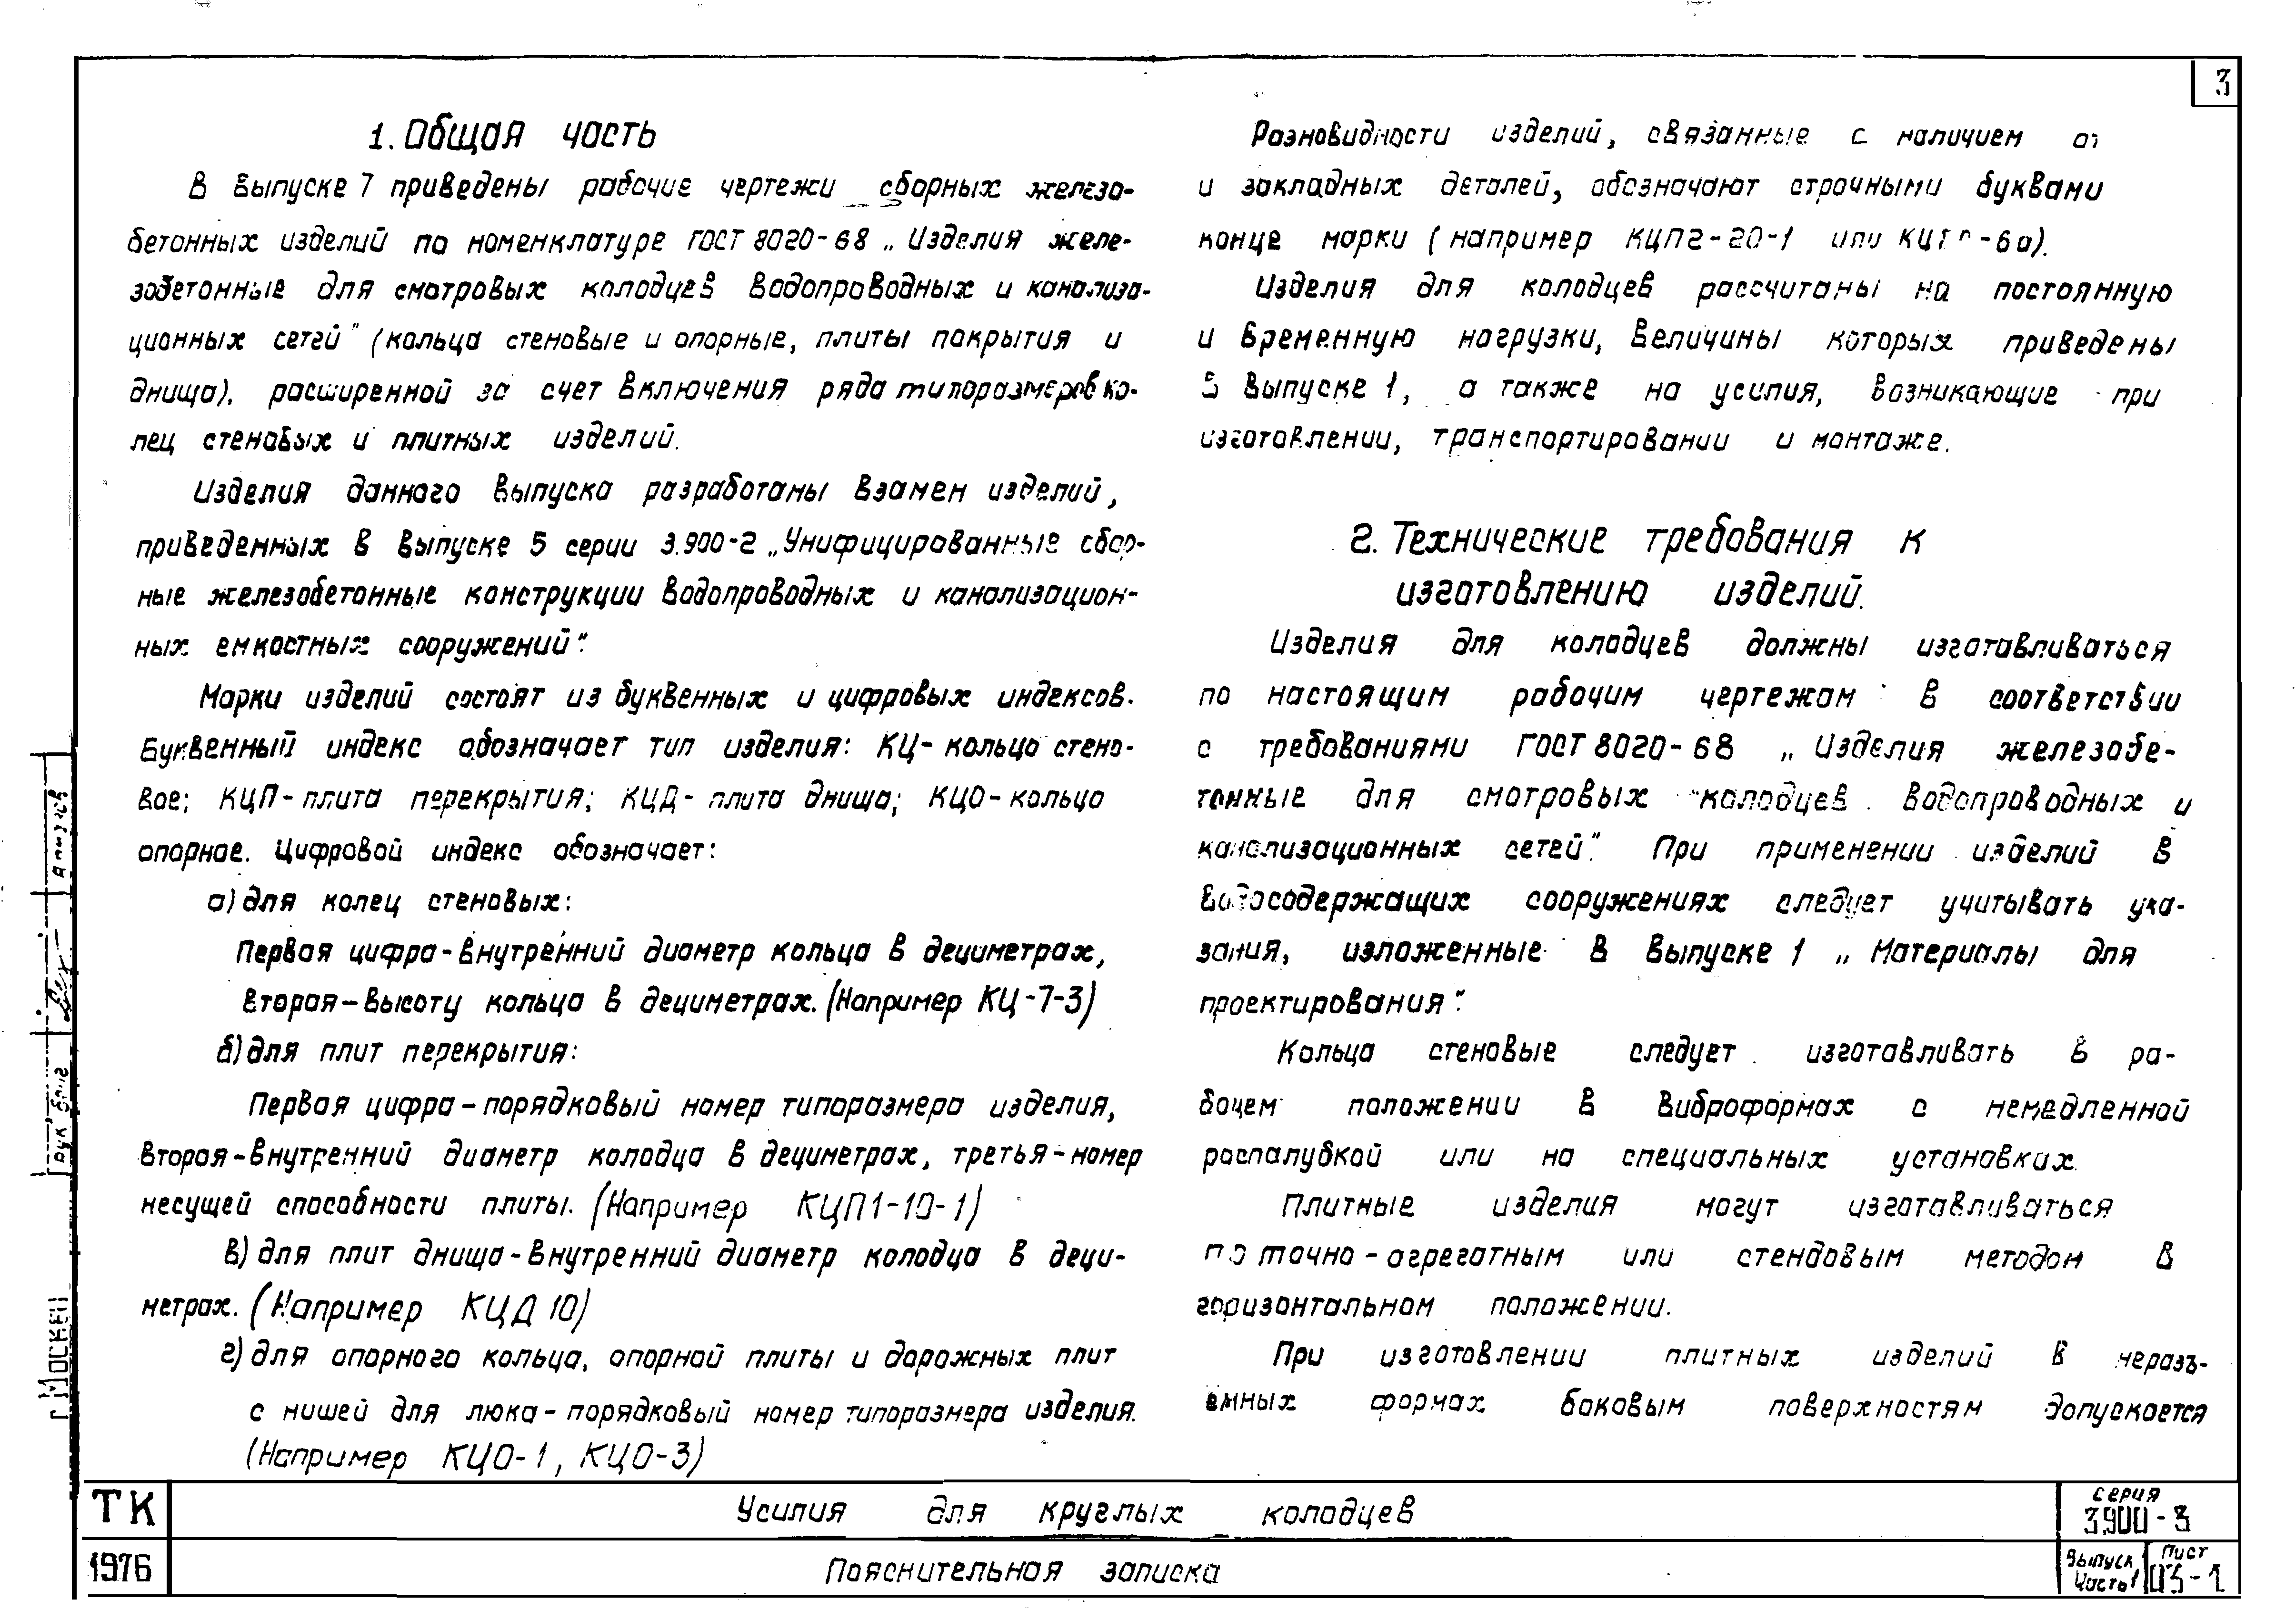 3
1. Общая часть
В выпуске 7 приведены рабочие чертежи сборных железо-
бетонных изделий по номенклатуре ГОСТ 8020-68 „Изделия желе-
зобетонные для смотровых колодцев водопроводных и канализа-
ционных сетей" (кольца стеновые и опорные, плиты покрытия и
днища), расширенной за счет включения ряда типоразмеров ко-
лец стеновых и плитных изделий.
Изделия данного выпуска разработаны взамен изделий,
приведенных в выпуске 5 серии 3.900-2 „Унифицированные сбор-
ные железобетонные конструкции водопроводных и канализацион-
ных емкостных сооружений".
Марки изделий состоят из буквенных и цифровых индексов.
Буквенный индекс обозначает тип изделия: КЦ-кольцо стено-
вое; КЦП-плита перекрытия; КЦД-плита днища; КЦО-кольцо
опорное. Цифровой индекс обозначает:
а) для колец стеновых:
Первая цифра-внутренний диаметр кольца в дециметрах,
вторая-высоту кольца в дециметрах. (Например КЦ-7-3)
б) для плит перекрытия:
Первая цифра-порядковый номер типоразмера изделия,
вторая-внутренний диаметр колодца в дециметрах, третья-номер
несущей способности плиты. (Например КЦП1-10-1)
в) для плит днища-внутренний диаметр колодца в деци-
метрах. (Например КЦД 10)
г) для опорного кольца, опорной плиты и дорожных плит
с нишей для люка-порядковый номер типоразмера изделия.
(Например КЦО-1, КЦО-3)
Разновидности изделий, связанные с наличием
и закладных деталей, обозначают строчными буквами
конце марки (например КЦП2-20-1 или
Изделия для колодцев рассчитаны на постоянную
и временную нагрузки, величины которых приведены
в выпуске 1, а также на усилия, возникающие при
изготовлении, транспортировании и монтаже.
2. Технические требования к
изготовлению изделий.
Изделия для колодцев должны изготавливаться
по настоящим рабочим чертежам в соответствии
с требованиями ГОСТ 8020-68 „Изделия железобе-
тонные для смотровых колодцев водопроводных и
канализационных сетей". При применении изделий в
водосодержащих сооружениях следует учитывать ука-
зания, изложенные в выпуске 1 „Материалы для
проектирования".
Кольца стеновые следует изготавливать в ра-
бочем положении в виброформах с немедленной
распалубкой или на специальных установках.
Плитные изделия могут изготавливаться
поточно-агрегатным или стендовым методом в
горизонтальном положении.
При изготовлении плитных изделий в неразъ-
емных формах боковым поверхностям допускается
ТК
1976
Усилия для круглых колодцев
Пояснительная записка
серия
3.900-3
Выпуск
Часть 1
Лист
ПЗ-1
г Москва
Рук бриг